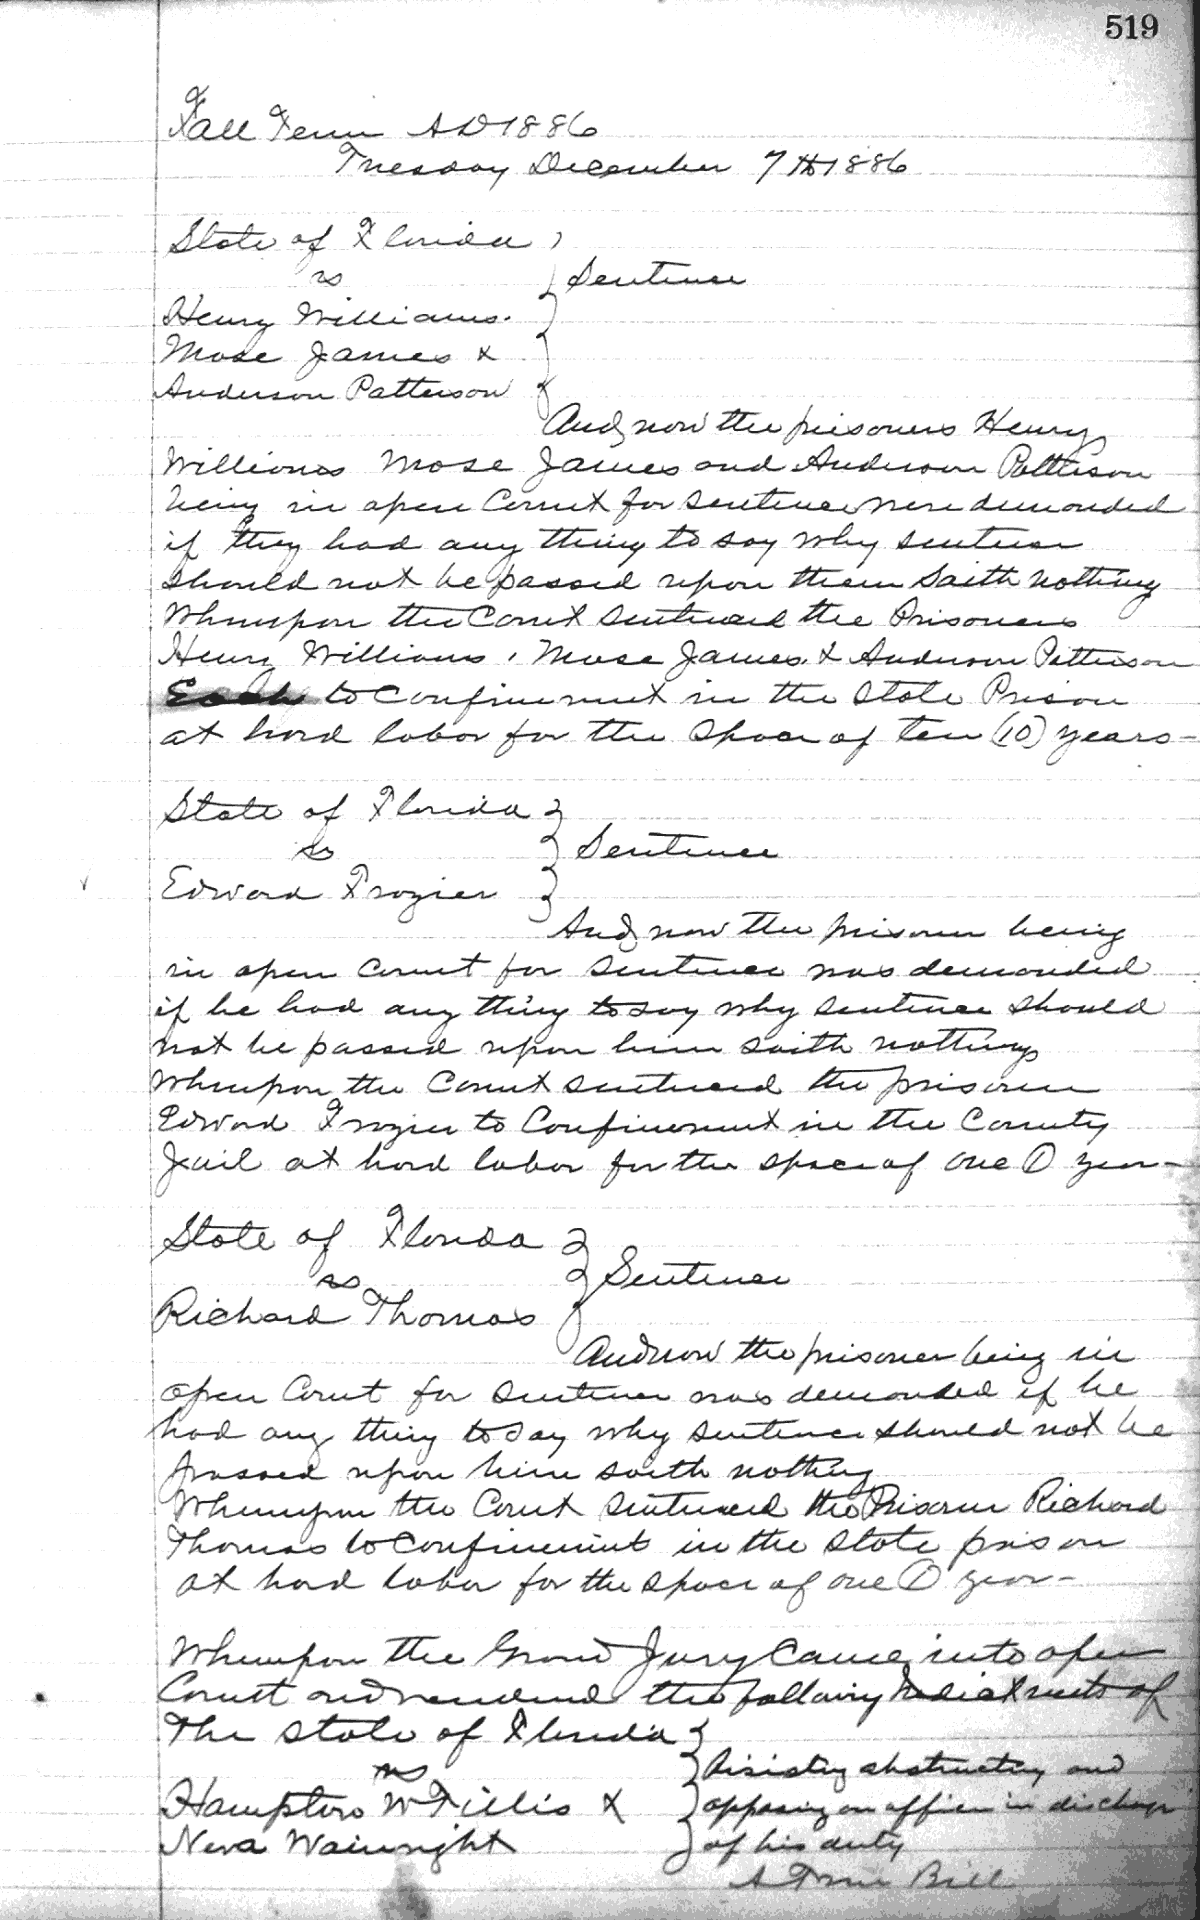 519
Fall Term AD 1886
Tuesday December 7th 1886
State of Florida
vs
Sentence
Henry Williams.
Mose James &
Anderson Patterson
And now the prisoners Henry
Williams Mose James and Anderson Patterson
being in open Court for sentence were demanded
if they had any thing to say why sentence
should not be passed upon them saith nothing
Whereupon the Court sentenced the Prisoners
Henry Williams, Mose James & Anderson Patterson
Each to confinement in the State Prison
at hard labor for the space of ten (10) years -
State of Florida
vs
Sentence
Edward Frozier
And now the prisoner being
in open Court for sentence was demanded
if he had any thing to say why sentence should
not be passed upon him saith nothing
Whereupon the Court sentenced the prisoner
Edward Frozier to Confinement in the County
Jail at hard labor for the space of one (1) year -
State of Florida
vs
Sentence
Richard Thomas
And now the prisoner being in
open Court for sentence was demanded if he
had any thing to say why sentence should not be
passed upon him saith nothing
Whereupon the Court sentenced the Prisoner Richard
Thomas to confinement in the State prison
at hard labor for the space of one (1) year -
Whereupon the Grand Jury came into open
Court and rendered the following Indictments of
The State of Florida
vs
Resisting obstructing and
Hampton W Tillis &
opposing an officer in discharge
Neva Wainright
of his duty
A True Bill